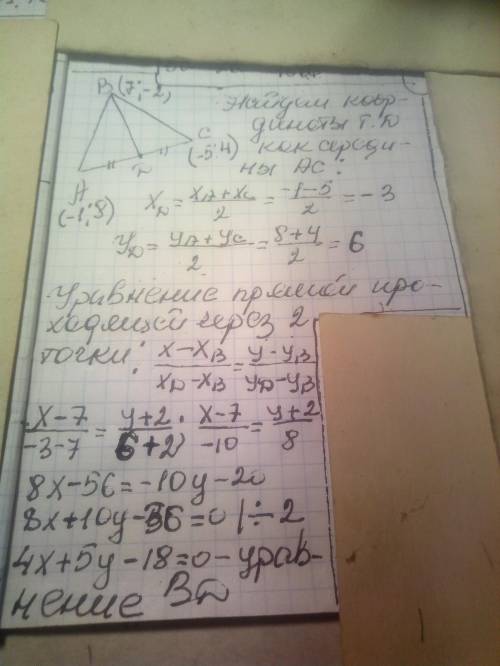 B(7;-2)
Найдем коор-
динаты т. D
как середи-
ны AC:
C
(-5;4)
D
A
(-1;8)
x_D = (x_A+x_C)/2 = (-1-5)/2 = -3
y_D = (y_A+y_C)/2 = (8+4)/2 = 6
Уравнение прямой про-
ходящей через 2
точки: (x-x_B)/(x_D-x_B) = (y-y_B)/(y_D-y_B)
(x-7)/(-3-7) = (y+2)/(6+2); (x-7)/(-10) = (y+2)/8
8x-56=-10y-20
8x+10y-36=0 |÷2
4x+5y-18=0 - урав-
нение BD